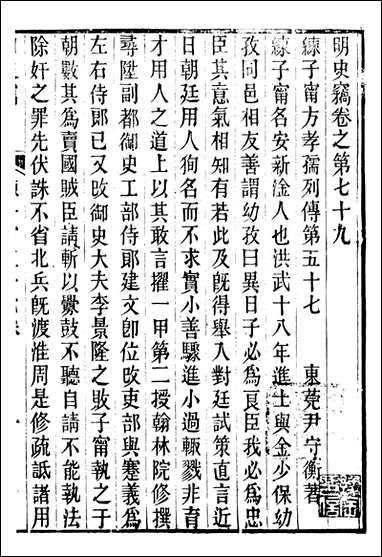 明史竊卷之第七十九
練子甯方孝孺列傳第五十七　東莞尹守衡著
練子甯名安新淦人也洪武十八年進士與金少保幼
孜同邑相友善謂幼孜曰異日子必爲良臣我必爲忠
臣其意氣相知有若此及旣得舉入對廷試策直言近
日朝廷用人狥名而不求實小善驟進小過輒戮非育
才用人之道上以其敢言擢一甲第二授翰林院修撰
尋陞副都御史工部侍郎建文卽位攺吏部與蹇義爲
左右侍郎已又攺御史大夫李景隆之敗子甯執之于
朝數其爲賣國賊臣請斬以釁鼓不聽自請不能執法
除奸之罪先伏誅不省北兵旣渡淮周是修疏詆諸用